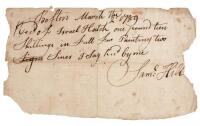 Boston March 19th 1789
Recd of Israel Hatch one pound ten
Shillings in full for Painting two
Signs Lines & Tag By me
Saml Hill